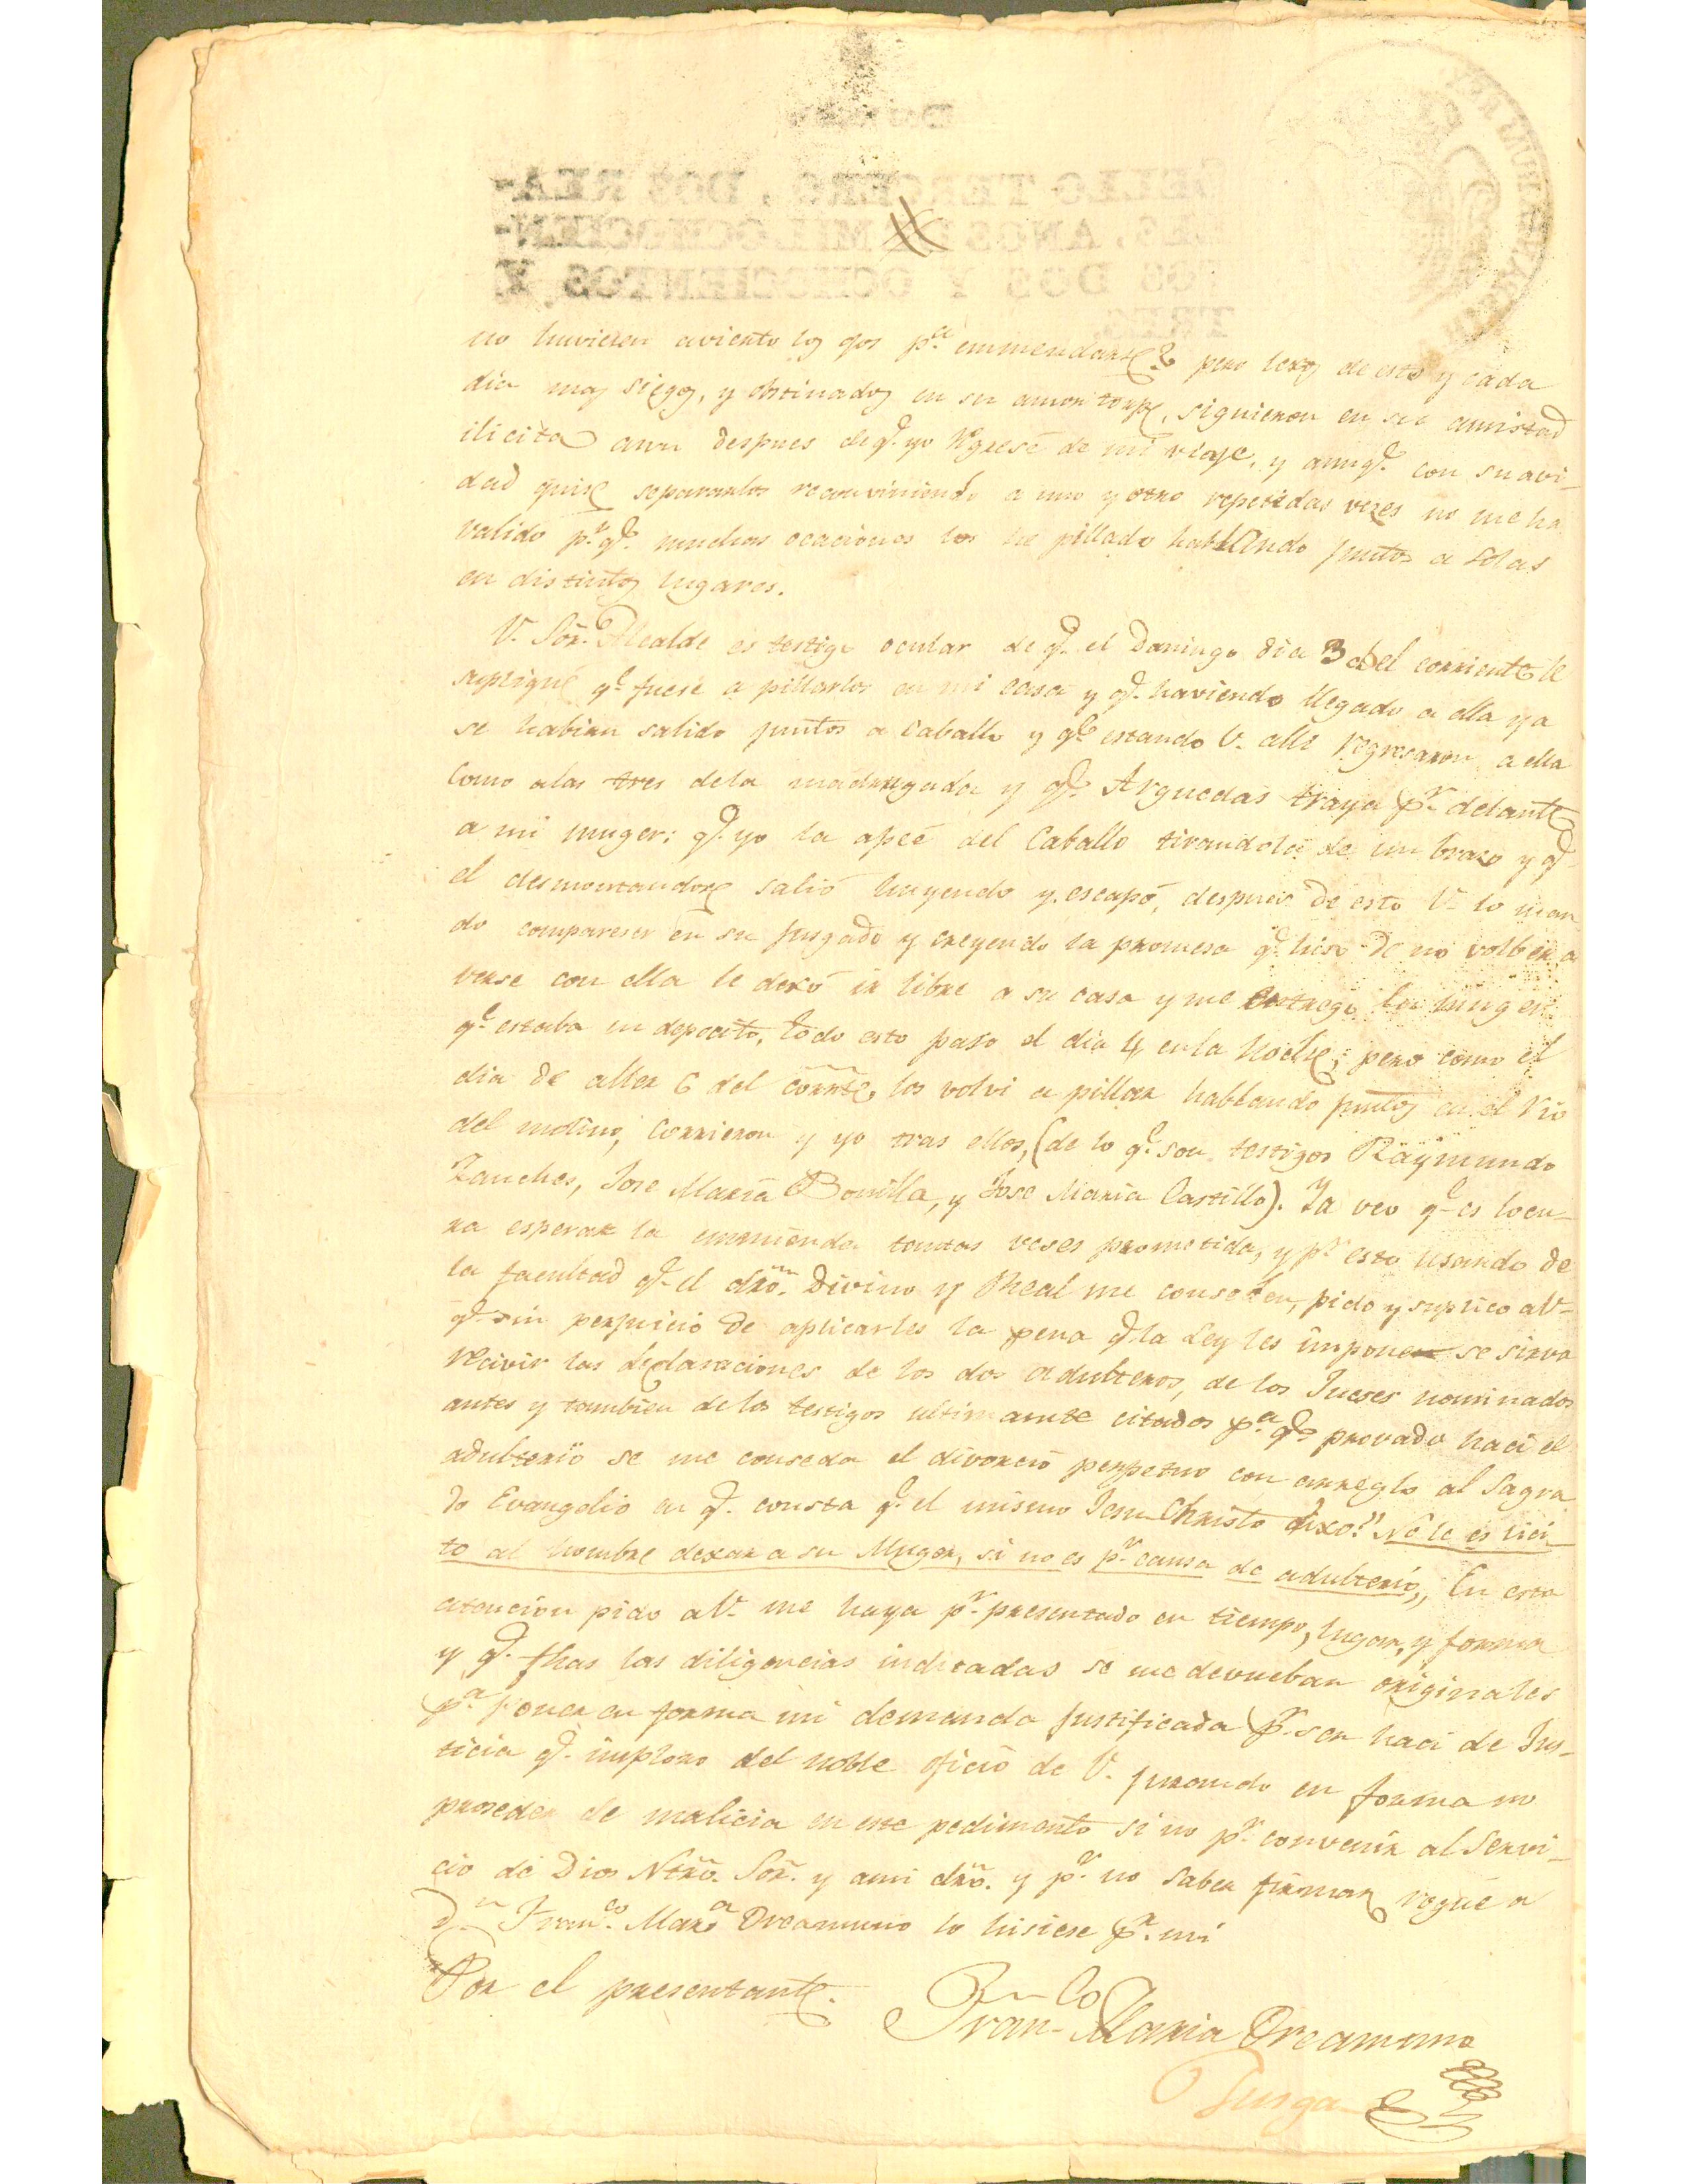 no huvieren aviento los qos p.ª enmendarse? pero lexos de esto y cada
dia mas siegos, y obstinados en su amor torpe, siguieron en su amistad
ilicita aun despues de q.e yo regresé de mi viaje, y aunq.e con suavi-
dad quise separarlos reconviniendo a uno y otro repetidas vezes no me ha
valido p.r q.e muchas ocaciones los he pillado hablando juntos a solas
en distintos lugares.
V. Sōr. Alcalde es testigo ocular de q.e el Domingo dia 3 del corriente le
supliqué q.e fuese a pillarlos en mi casa y q.e haviendo llegado a ella ya
se habian salido juntos a caballo y q.e estando V. alli regresaron a ella
como a las tres dela madrugada y q.e Arguedas traya p.r delante
a mi muger: q.e yo la apeé del Caballo tirandola de un brazo y q.e
el desmontandose salió huyendo y escapó, despues de esto V. lo man
do compareser en su jusgado y creyendo la promesa q.e hiso de no volber a
verse con ella le dexó ir libre a su casa y me entregó la muger
q.e estaba en depocito, todo esto paso el dia 4 en la noche; pero como el
dia de aller 6 del corrte. los volvi a pillar hablando juntos en el rio
del molino, corrieron y yo tras ellos, (de lo q.e son testigos Raÿmundo
Zanches, Jose Maria Bonilla, y Jose Maria Castillo). Ya veo q.e es locu-
ra esperar la enmienda tantas veses prometida, y p.r esto usando de
la facultad q.e el dr̃o. Divino y Real me conseden, pido y suplico a V.
q.e sin perjuicio de aplicarles la pena q.e la Ley les impone se sirva
recivir las declaraciones de los dos adulteros, de los Jueses nominados
antes y tambien de los testigos ultimamte citados p.ª q.e provado haci el
adulterio se me conseda el divorcio perpetuo con arreglo al Sagra
do Evangelio en q.e consta q.e el mismo Jesu Christo dixo: "No le es lici-
to al hombre dexar a su Muger, si no es p.r causa de adulterio,, En esta
atencion pido a V. me haya p.r presentado en tiempo, lugar, y forma
y q.e fhas las diligencias indicadas se me devueban originales
p.ª poner en forma mi demanda justificada p.r ser haci de Jus-
ticia q.e imploro del noble oficio de V. jurando en forma no
proseder de malicia en este pedimento si no p.r convenir al Servi-
cio de Dios Ntrõ. Sōr. y a mi dr̃o. y p.r no saber firmar rogué a
D.n Fran.co Mar.a Oreamuno lo hisiese p.r mi
Por el presentante.
Fran.co Maria Oreamuno